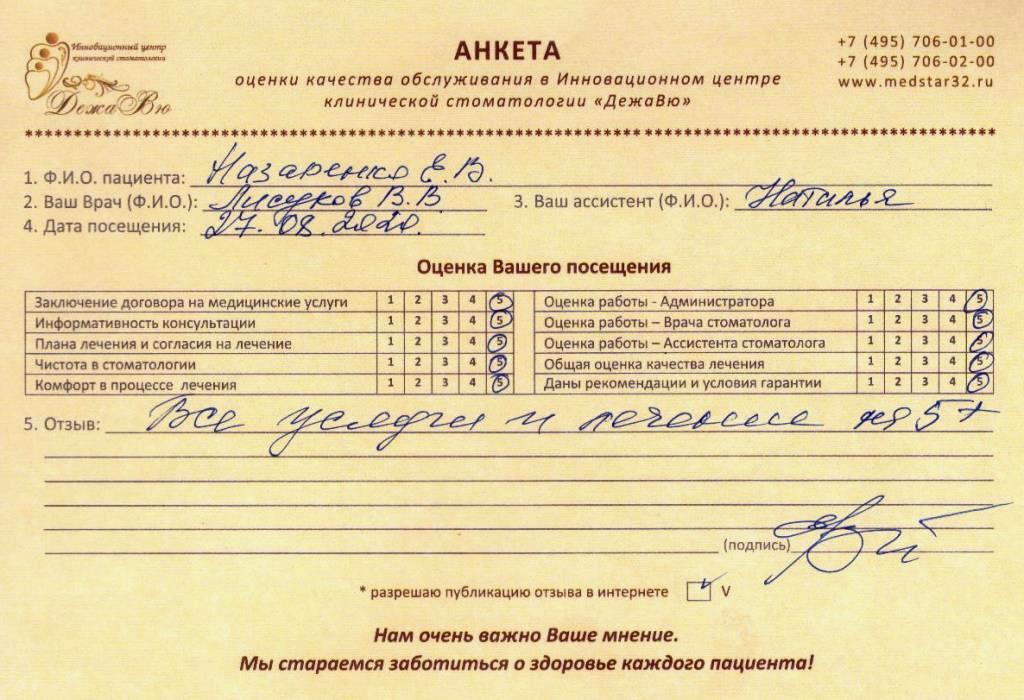 Инновационный центр
клинической стоматологии
ДежаВю
АНКЕТА
оценки качества обслуживания в Инновационном центре
клинической стоматологии «ДежаВю»
+7 (495) 706-01-00
+7 (495) 706-02-00
www.medstar32.ru
1. Ф.И.О. пациента: Назаренко Е.В.
2. Ваш Врач (Ф.И.О.): Лисуков В.В 3. Ваш ассистент (Ф.И.О.): Наталья
4. Дата посещения: 27.08.2020.
Оценка Вашего посещения
Заключение договора на медицинские услуги 1 2 3 4 5 Оценка работы - Администратора 1 2 3 4 5
Информативность консультации 1 2 3 4 5 Оценка работы – Врача стоматолога 1 2 3 4 5
Плана лечения и согласия на лечение 1 2 3 4 5 Оценка работы – Ассистента стоматолога 1 2 3 4 5
Чистота в стоматологии 1 2 3 4 5 Общая оценка качества лечения 1 2 3 4 5
Комфорт в процессе лечения 1 2 3 4 5 Даны рекомендации и условия гарантии 1 2 3 4 5
5. Отзыв: Все услуги и лечение на 5+
(подпись)
* разрешаю публикацию отзыва в интернете V
Нам очень важно Ваше мнение.
Мы стараемся заботиться о здоровье каждого пациента!